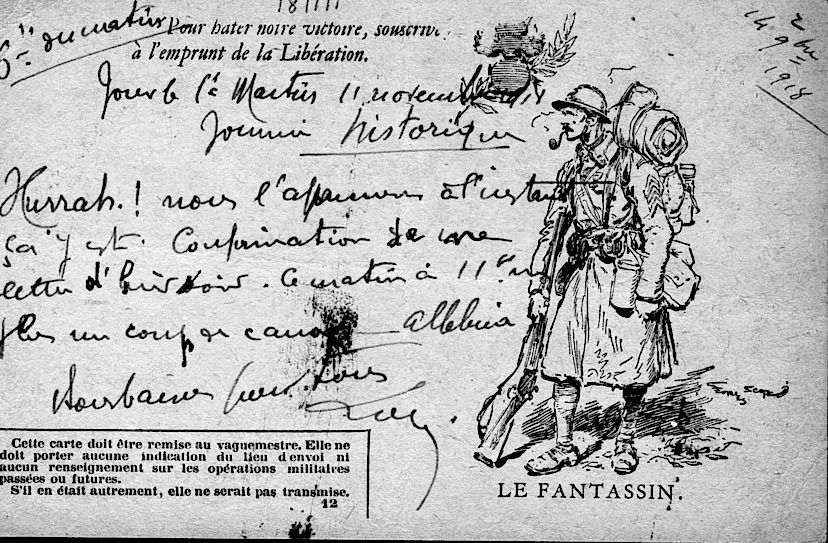 du matin
Pour hater notre victoire, souscrivez
à l'emprunt de la Libération.
14 9bre
1918
11 novembre
Journée historique
Hurrah! nous l'apprenons à l'instant
ça y est. Confirmation de ma
lettre d'hier soir. Ce matin à 11h
plus un coup de canon
Alleluia
tous
Cette carte doit être remise au vaguemestre. Elle ne
doit porter aucune indication du lieu d'envoi ni
aucun renseignement sur les opérations militaires
passées ou futures.
S'il en était autrement, elle ne serait pas transmise.
12
LE FANTASSIN.